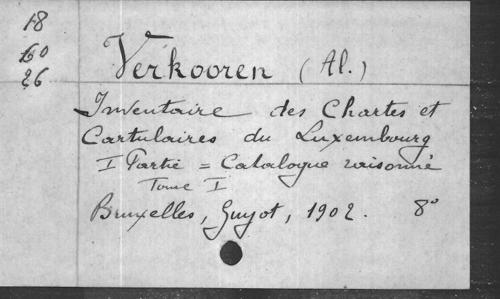 18
60
26
Verkooren (Al.)
Inventaire des Chartes et
Cartulaires du Luxembourg
I Partie = Catalogue raisonné
Tome I
Bruxelles, Guyot, 1902. 8°